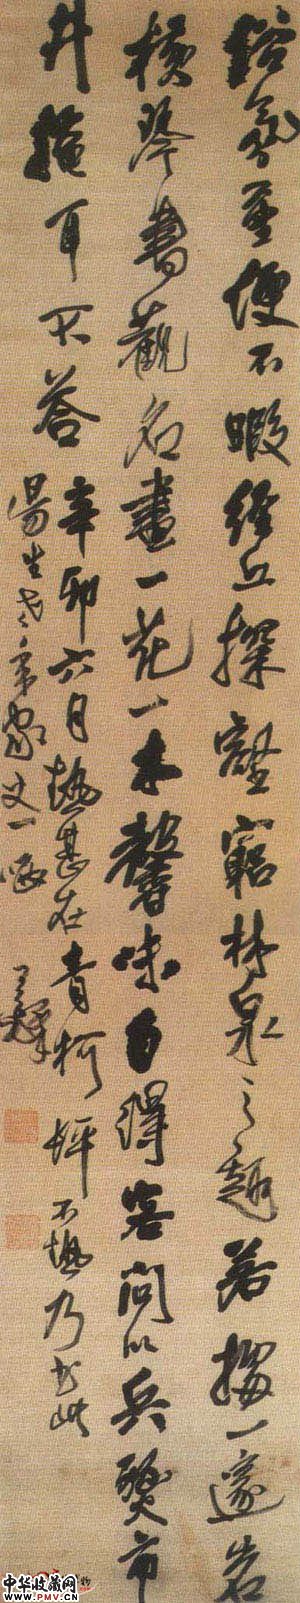 至便不暇經丘探壑窮林泉之趣若搆一邃岩
橫琴書觀名畫一花一木馨味自得客問以兵燹市
井掩耳不答 辛卯六月熱甚在青柯坪不熱乃書此
湯生老年家丈一哂 王鐸
中华收藏网
WWW.PMV.CN